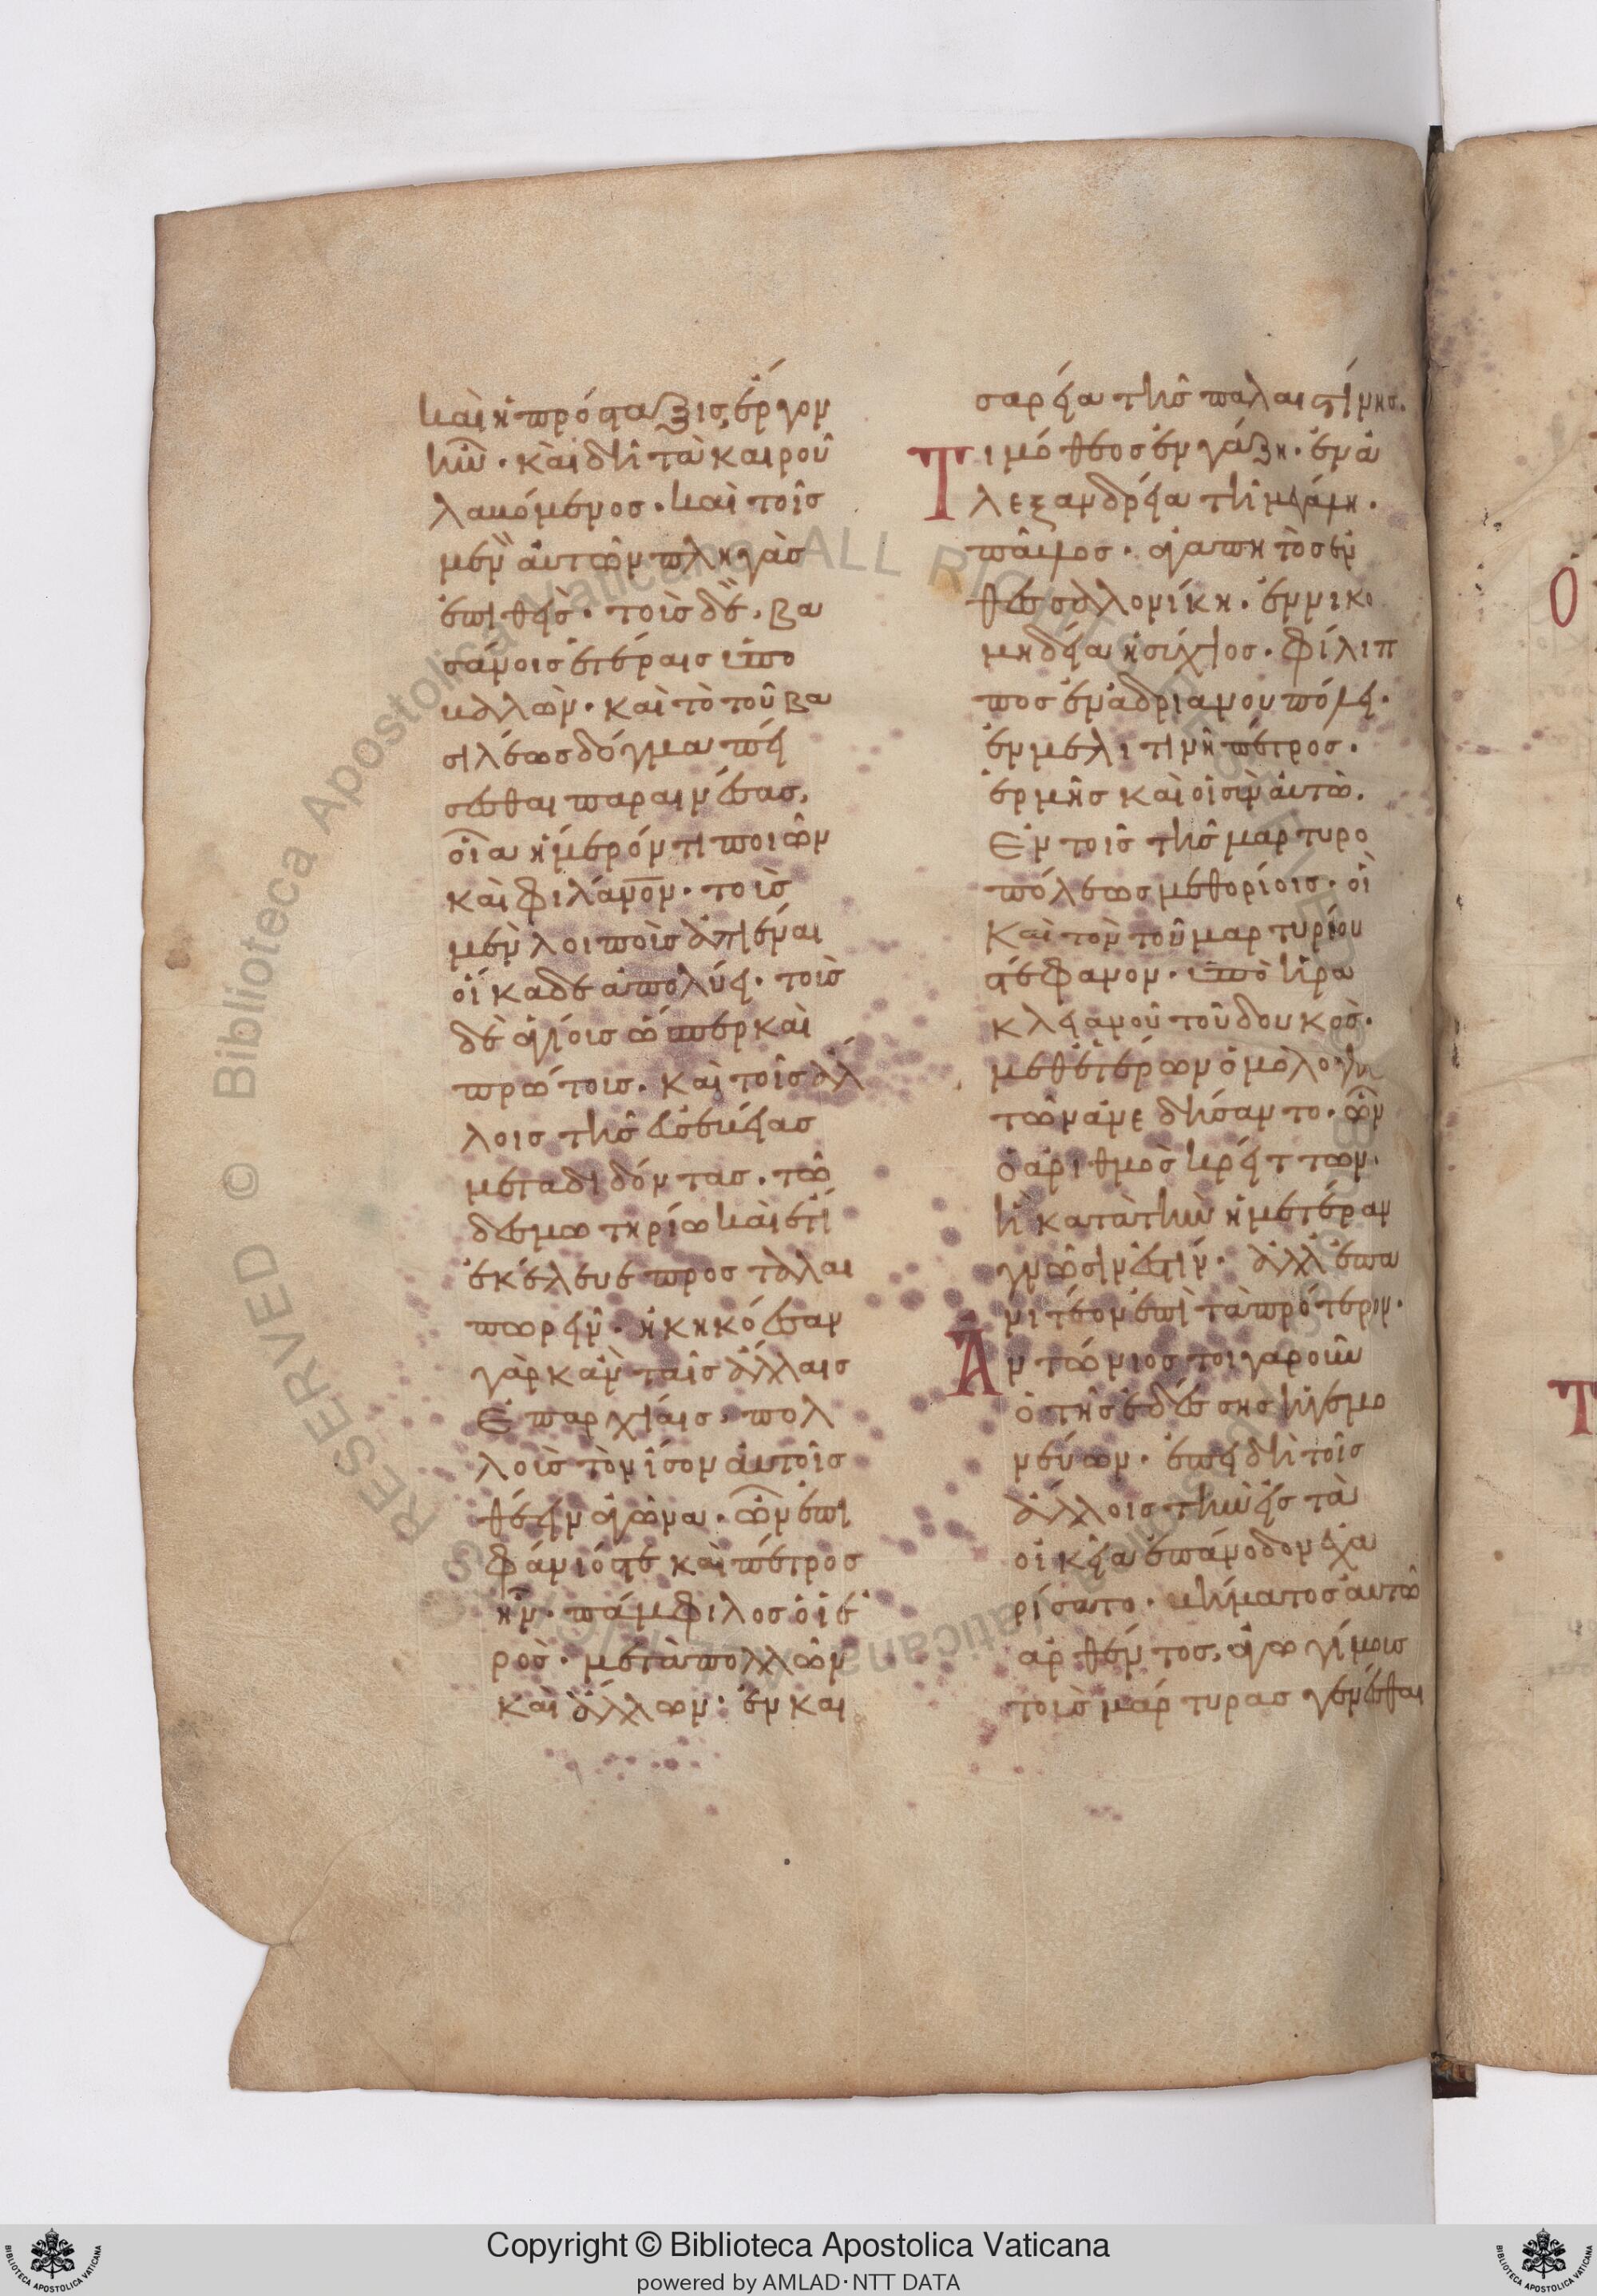 καὶ ἡ πρόσταξις, ἔργον
ἦν· καὶ δὴ τὰ καιροῦ
λακόμενος· καὶ τοῖς
μὲν αὐτῶν πληγὰς
ἐπιθεὶς· τοῖς δὲ, βα
σάνοις ἑτέραις ὑπο
καλῶν· καὶ τὸ τοῦ βα
σιλέως δόγμα πεί
σεσθαι παραινέσας,
οἷα ἡμερόν τι ποιῶν
καὶ φιλάνον· τοῖς
μὲν λοιποῖς ἀπιέναι
οἴκαδε ἀπολύει· τοῖς
δὲ ἁγίοις ὥσπερ καὶ
πρώτοις· καὶ τοῖς ἄλ
λοις τῆς εὐσεβείας
μεταδιδόντας· τῶ
δεσμωτηρίω καὶ ἔτι
ἐκέλευε προσταλαι
πωρεῖν· ἠκηκόεσαν
γὰρ κἀν ταῖς ἄλλαις
ἐπαρχίαις, πολ
λοῖς τὸν ἴσον αὐτοῖς
θέειν ἀγῶνα· ὧν ἐπι
φάνιός τε καὶ πέτρος
ἦν· πάμφιλος ὁ ἱε
ρὸς· μετὰ πολλῶν
καὶ ἄλλων· ἐν και
σαρεία τῆς παλαιστίνης.
Τιμόθεος ἐν γάζη· ἐν ἀ
λεξανδρεία τῆ μεγάλη·
παῦλος· ἀγαπητὸς ἐν
θεσσαλονίκη· ἐν νικο
μηδεία ἡσύχιος· φίλιπ
πος ἐν ἀδριανουπόλει·
ἐν μελιτινῆ πέτρος·
ἑρμῆς καὶ οἱ σὺν αὐτῶ.
Ἐν τοῖς τῆς μαρτυρο
πόλεως μεθορίοις· οἳ
καὶ τὸν τοῦ μαρτυρίου
στέφανον· ὑπὸ ἡρα
κλειανοῦ τοῦ δουκὸς·
μεθ' ἑτέρων ὁμολογη
τῶν ἀνεδήσαντο· ὧν
ὁ ἀριθμὸς κρείττων·
ἢ κατὰ τὴν ἡμετέραν
γνῶσίν ἐστίν· ἀλλ' ἐπα
νιτέον ἐπὶ τὰ πρότερον.
Ἀντώνιος τοιγαροῦν
ὁ τῆς ἐδέσσης ἡγεμο
νεύων· ἐπεὶ δὴ τοῖς
ἄλλοις τὴν εἰς τὰ
οἰκεῖα ἐπάνοδον ἐχα
ρίσατο· κλήματος αὐτῶ
ἀρθέντος, ἀγωγίμους
τοὺς μάρτυρας γενέσθαι
Copyright © Biblioteca Apostolica Vaticana
powered by AMLAD·NTT DATA